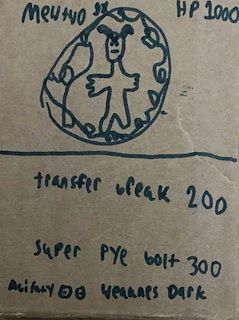 Mewtwo ex HP 1000
transfer break 200
super Pye bolt 300
weaknes Dark